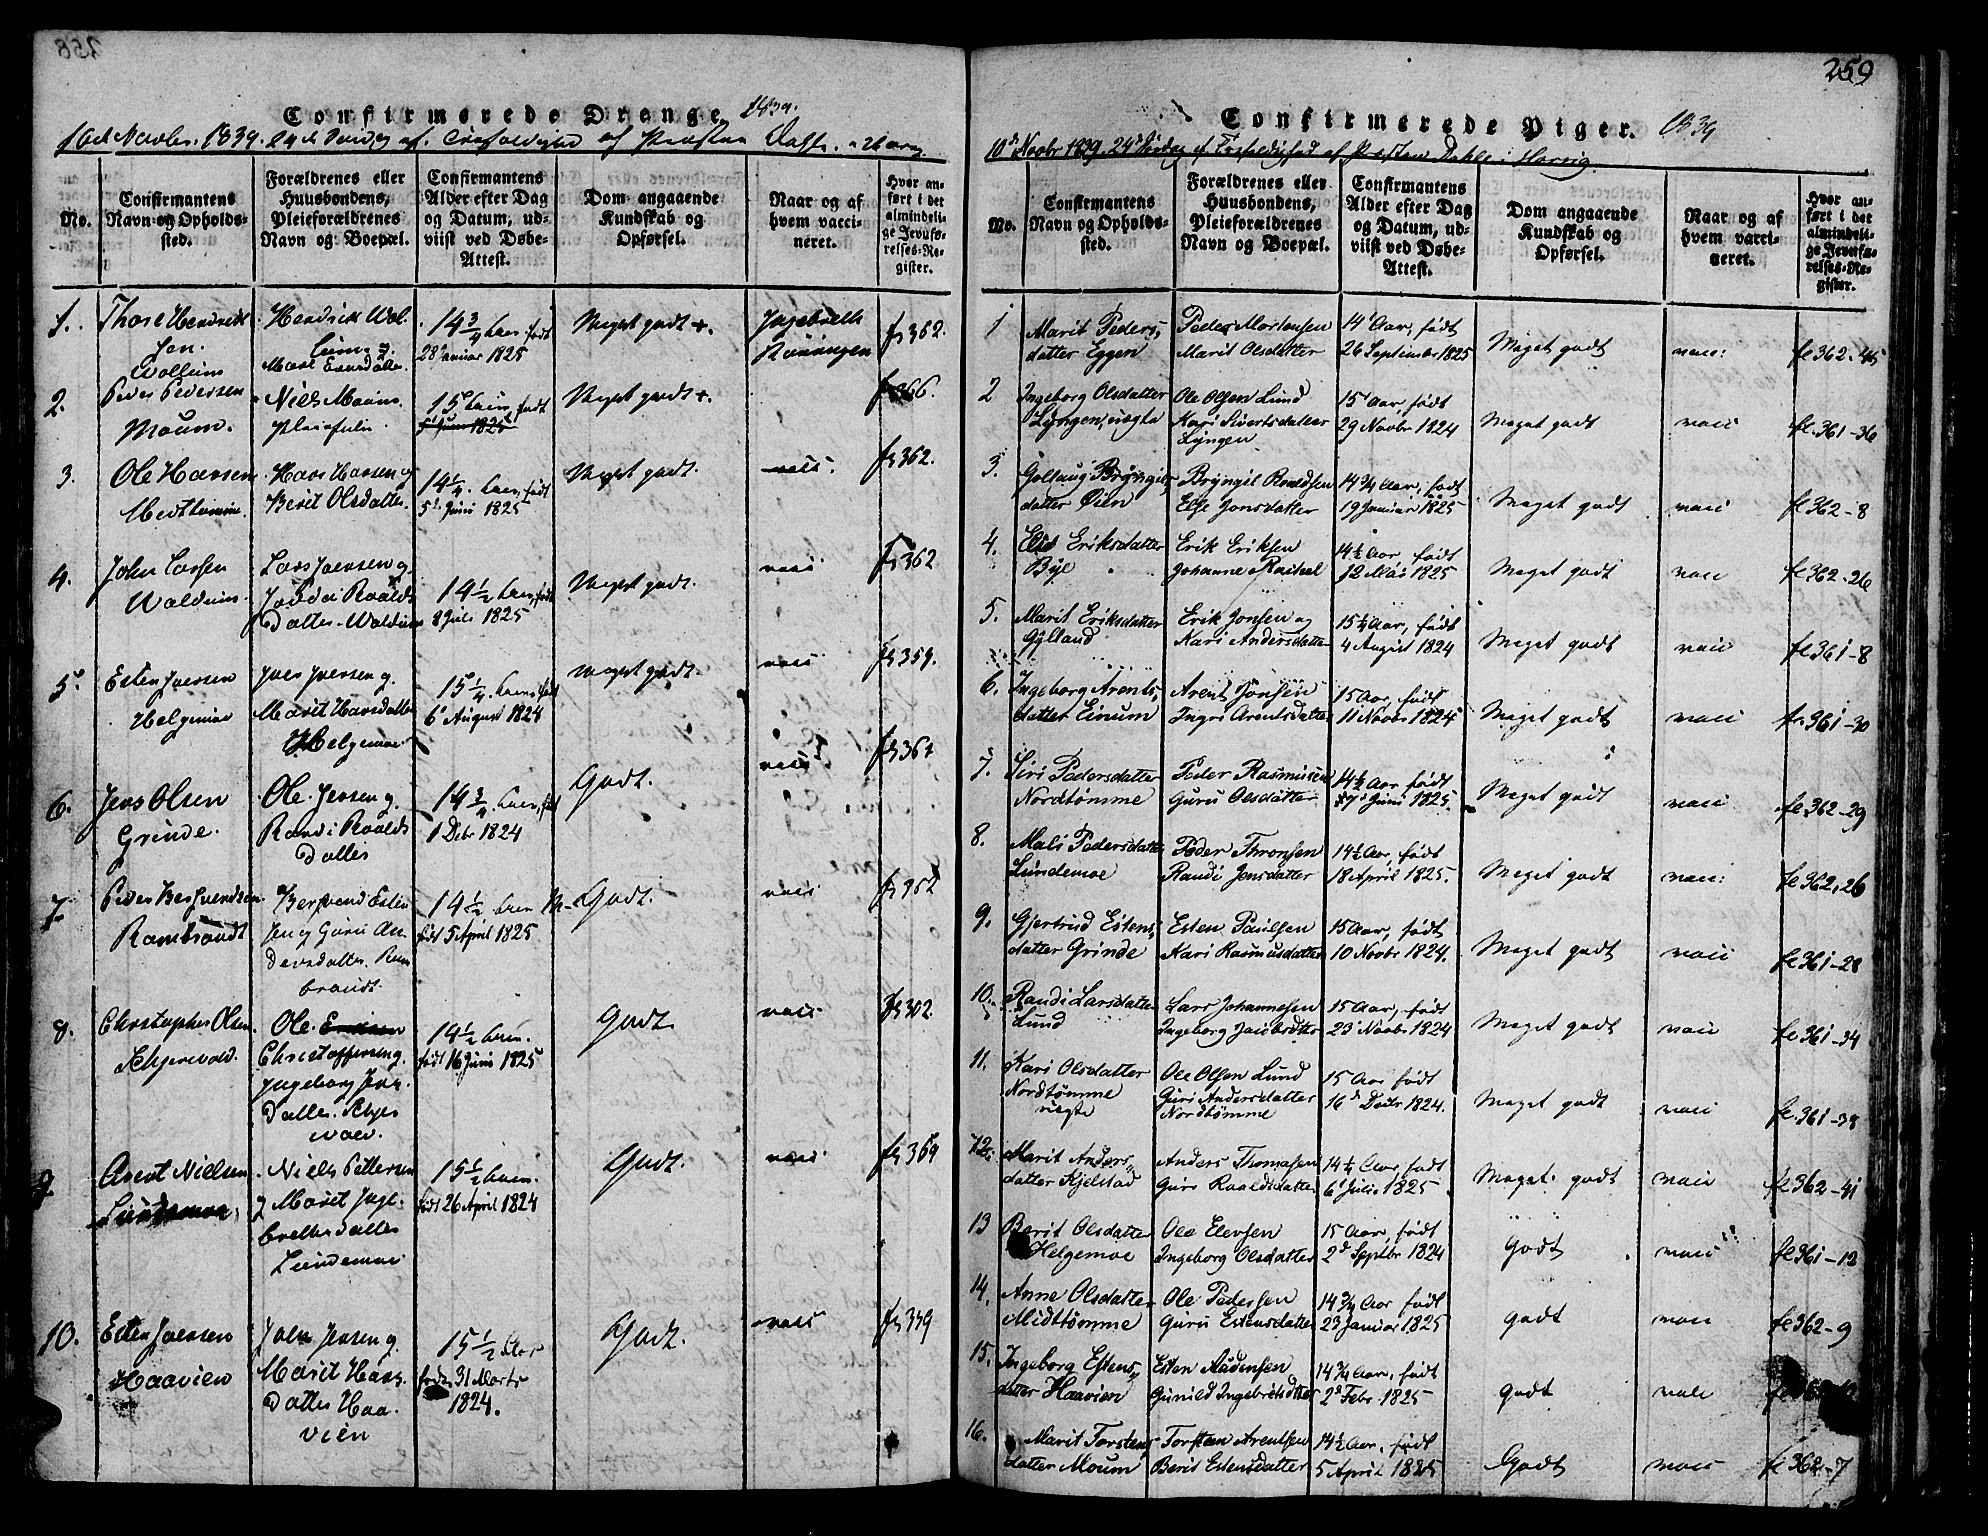 258
Confirmerede Drenge 1839.
10de Novbr. 1839. 24de Søndag af Trefoldighed af Præsten
No.
Confirmantens
Navn og Opholds-
sted.
Forældrenes eller
Huusbondens,
Pleieforældrenes
Navn og Boepæl.
Confirmantens
Alder efter Dag
og Datum, ud-
viist ved Døbe-
Attest.
Dom angaaende
Kundskab og
Opførsel.
Naar og af
hvem vacci-
neret.
Hvor an-
ført i det
almindeli-
ge Jevnfø-
relses-Re-
gister.
1.
Thore Hendrik
sen
Hendrik
og
14 3/4 Aar, født
28 Januar 1825
Meget godt +.
fo 362.
2.
Peder Pedersen
Moum.
Niels Moum.
15 Aar, født
5 Juni 1825
Meget godt +.
fo 366.
3.
Ole Hansen
Midttømme.
Hans Hansen og
Berit Olsdatter.
14 1/4. Aar, født
5 Juni 1825
Meget godt.
fo 362.
4.
John Larsen
Lars Joensen og
Roalds
Datter
14 1/2 Aar, født
8 Juli 1825
Meget godt.
fo 362
5.
Esten Iversen
Helgemoe
Iver Iversen og
Marit Hansdatter
Helgemoe
15 1/4. Aar, født
6 August 1824
Meget godt.
fo 359.
6.
Jens Olsen
Grinde.
Ole Jensen og
Randi Roalds
Datter
14 3/4 Aar, født
1 Debr 1824
Godt.
fo 367
7.
Peder Bersvendsen
Rambraudt
Bersvend Esten
sen og Guru An
dersdatter. Ram
braudt.
14 1/2 Aar
født 5 April 1825
Godt.
8.
Christopher Olsen
Ole Eriksen
Christoffersen og
Ingeborg Jens
Datter.
14 1/2 Aar.
født 16 Juni 1825
Godt
fo 302.
9.
Arent Nielsen
Lundemoe,
Niels Pettersen
og Marit Inge-
brethsdatter
Lundemoe
15 1/2 Aar.
født 26 April 1824
Godt.
fo 369
10.
Esten Joensen
Haavien
Joen Jensen og
Marit Hans
Datter Haa-
vien
15 1/2 Aar
født 31 Marts
1824.
Godt.
fo 359
259
Confirmerede Piger. 1839
10de Novbr 1839. 24de Søndag af Trefoldighed af Præsten Dahle i Horrig
No.
Confirmantens
Navn og Opholds-
sted.
Forældrenes eller
Huusbondens,
Pleieforældrenes
Navn og Boepæl.
Confirmantens
Alder efter Dag
og Datum, ud-
viist ved Døbe-
Attest.
Dom angaaende
Kundskab og
Opførsel.
Naar og af
hvem vacci-
neret.
Hvor an-
ført i det
almindeli-
ge Jevnfø-
relses-Re-
gister.
1
Marit Peders,
datter Eggen
Peder Mortensen
Marit Olsdatter
14 Aar, født
26 September 1825
Meget godt
fo 362-45
2
Ingeborg Olsdatter
Lyngen, uægte
Ole Olsen Lund
Kari Sivertsdatter
Lyngen
15 Aar, født
29 Novbr 1824
Meget godt
fo 361-36
3.
Gollaug Bryngils,
datter Øien
Bryngil Roaldsen
Else Jonsdatter
14 3/4 Aar, født
19 Januar 1825
Meget godt
fo 362-8
4.
Else Eriksdatter
Bye
Erik Eriksen
Johanne Rachel
14 1/2 Aar, født
12 Mai 1825
Meget godt
fo 362-26
5.
Marit Eriksdatter
Gylland
Erik Jonsen og
Kari Andersdatter
15 1/4 Aar, født
4 August 1824
Meget godt
fo 361-8
6.
Ingeborg Arents,
datter Einum
Arent Jonsen
Ingri Arentsdatter
15 Aar, født
11 Novbr 1824
Meget godt
fo 361-30
7.
Siri Pedersdatter
Nordtømme
Peder Rasmusen
Guru Olsdatter
14 1/2 Aar født
17 Juni 1825.
Meget godt
fo 362-29
8.
Mali Pedersdatter
Lundemoe
Peder Thronsen
Randi Jonsdatter
14 1/2 Aar, født
18 April 1825.
Meget godt
fo 362,26
9.
Gjertrud Estens,
datter Grinde
Esten Paulsen
Kari Rasmusdatter
15 Aar, født
10 Novbr 1824.
Meget godt
fo 361-28
10.
Randi Larsdatter
Lund
Lars Johannesen
Ingeborg Jacobsdtter
15 Aar, født
23 Novbr 1824
Meget godt
fo 361-34
11.
Kari Olsdatter
Nordtømme
uægte
Ole Olsen Lund
Guri Andersdatter
Nordtømme
15 Aar født
16de Decbr 1824.
Meget godt
fo 361-38
12.
Marit Anders,
datter Kjelstad
Anders Thomasen
Guri Roaldsdatter
14 1/4 Aar, født
6 Juli 1825
Meget godt
fo 362-41
13
Berit Olsdatter
Helgemoe
Ole Elevsen
Ingeborg Olsdatter
15 Aar, født
2d Septbr 1824
Godt
fo 361-12
14.
Anne Olsdatter
Midttømme
Ole Pedersen
Guru Estensdatter
14 3/4 Aar født
23 Januar 1825
Godt
fo 362-9
15.
Ingeborg Estens,
datter Haavien
Esten Audensen
Gunild Ingebretsdtter
14 3/4 Aar, født
2d Febr. 1825
Godt
16.
Marit Torstens,
datter Moum
Torsten Arentsen
Berit Estensdatter
14 1/2 Aar, født
5 April 1825
Godt
fo 362-7